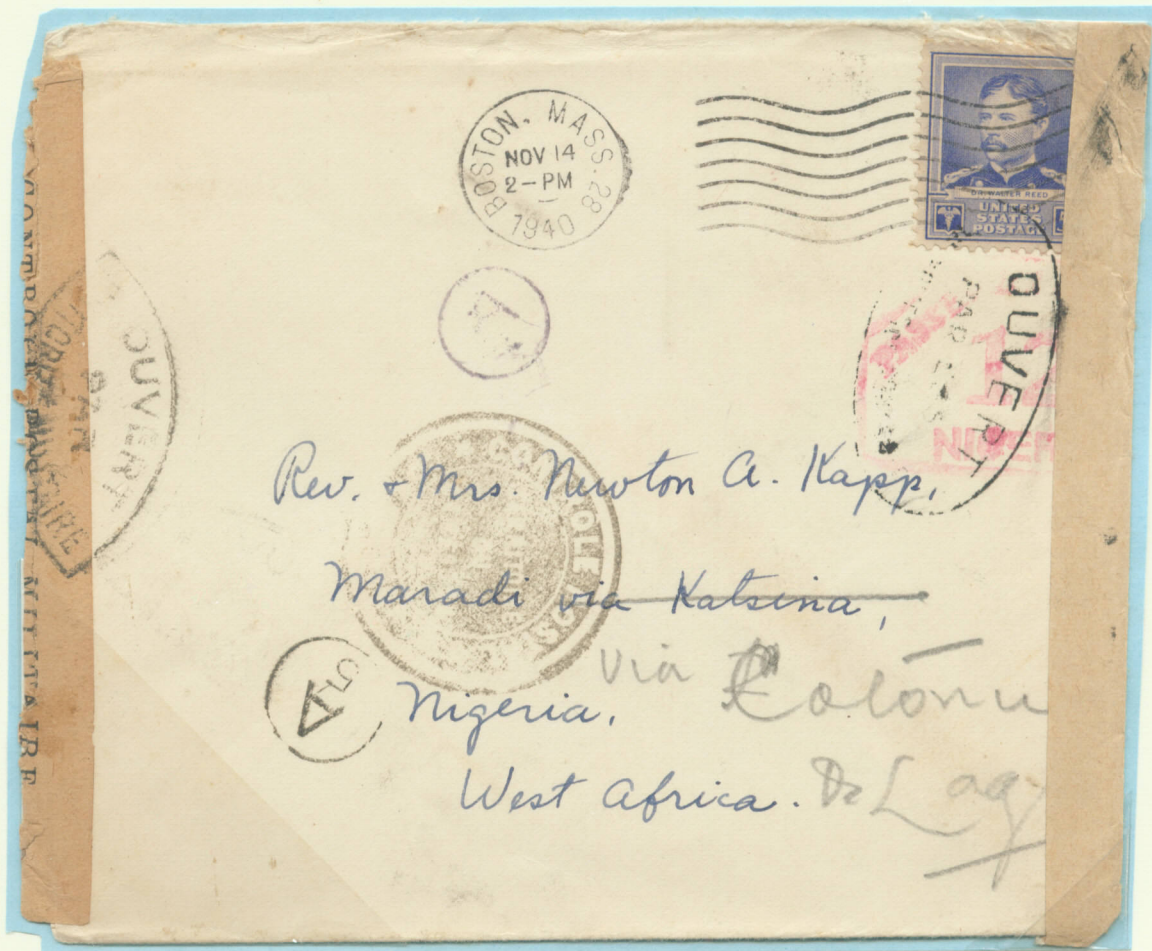 BOSTON, MASS. 28
NOV 14
2-PM
1940
DR. WALTER REED
UNITED
STATES
POSTAGE
5
OUVERT
PAR
12
A
OUVERT
PAR
CONTROLE POSTAL MILITAIRE
CONTROLE
Rev. & Mrs. Newton A. Kapp,
Maradi via Katsina,
via Cotonu
Nigeria.
West Africa. De Lag
A